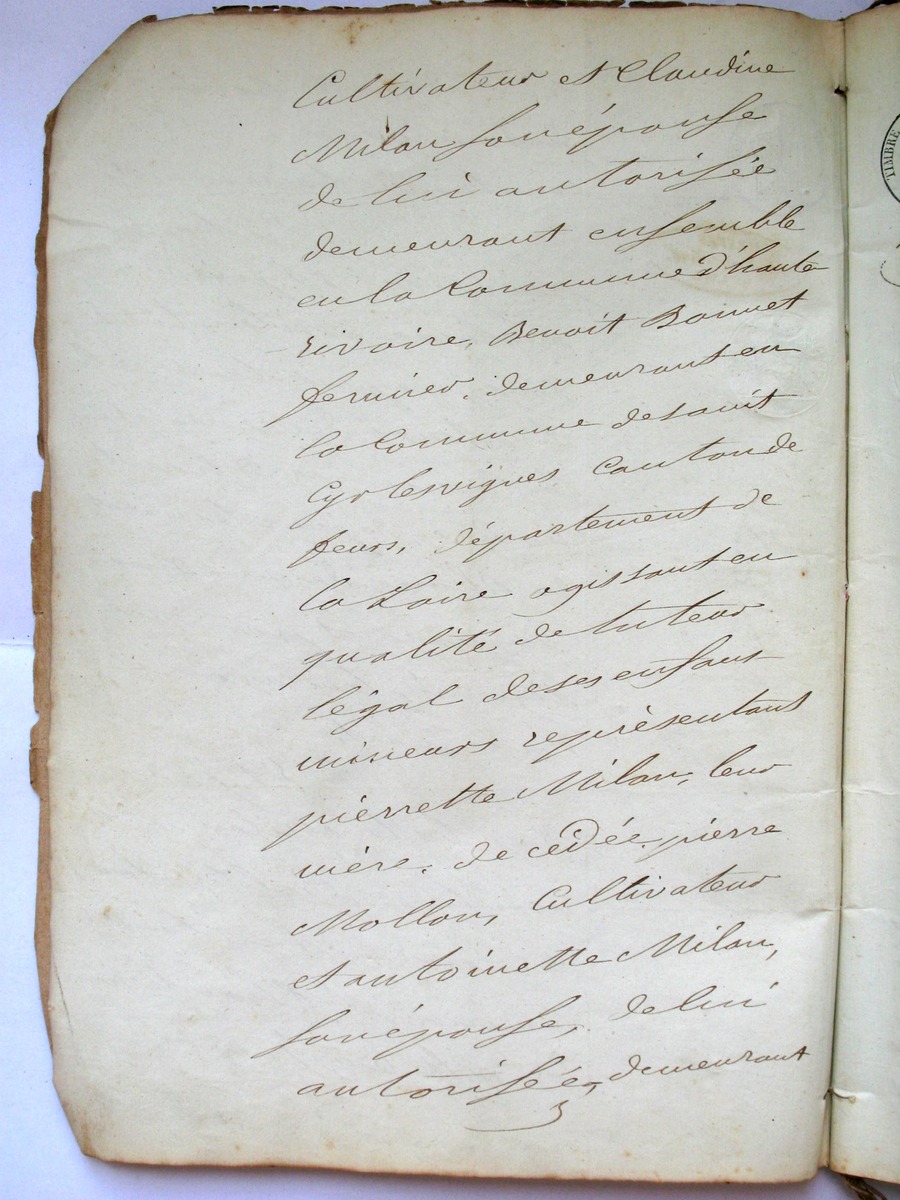 Cultivateur et Claudine
Milan son épouse
de lui autorisée
demeurant ensemble
en la Commune d'haute
rivoire, Benoit Bonnet
fermier, demeurant en
la Commune de saint
Cyr les vignes Canton de
feurs, département de
la Loire agissant en
qualité de tuteur
légal de ses enfans
mineurs représentant
pierrette Milan, leur
mère, décédée, pierre
Mollon, Cultivateur
et antoinette Milan,
son épouse, de lui
autorisée, demeurant
TIMBRE